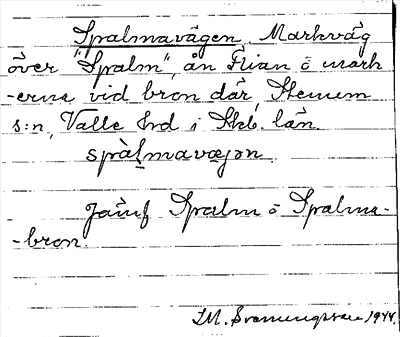 Spalmavägen. Markväg
över "Spalm", ån Flian o mark
-erna vid bron där, Stenum
s:n, Valle hrd i Skb. län.
spàlmavæjən
Jämf Spalm o Spalma-
-bron.
1944.